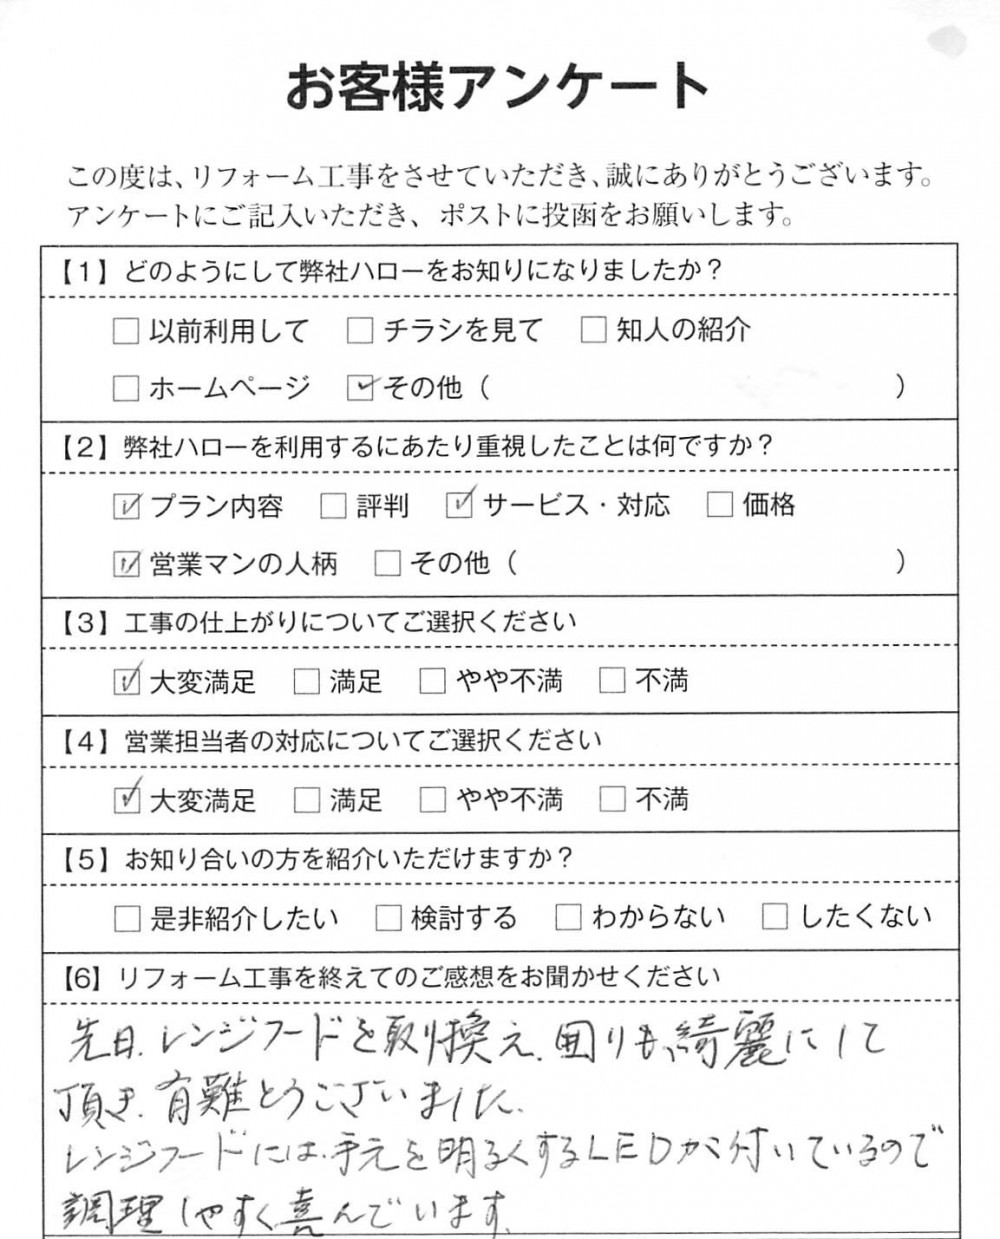 お客様アンケート
この度は、リフォーム工事をさせていただき、誠にありがとうございます。
アンケートにご記入いただき、ポストに投函をお願いします。
【1】どのようにして弊社ハローをお知りになりましたか？
□以前利用して □チラシを見て □知人の紹介
□ホームページ ☑その他（ ）
【2】弊社ハローを利用するにあたり重視したことは何ですか？
☑プラン内容 □評判 ☑サービス・対応 □価格
☑営業マンの人柄 □その他（ ）
【3】工事の仕上がりについてご選択ください
☑大変満足 □満足 □やや不満 □不満
【4】営業担当者の対応についてご選択ください
☑大変満足 □満足 □やや不満 □不満
【5】お知り合いの方を紹介いただけますか？
□是非紹介したい □検討する □わからない □したくない
【6】リフォーム工事を終えてのご感想をお聞かせください
先日、レンジフードを取り換え、囲りも、綺麗にして
頂き、有難とうございました。
レンジフードには、手元を明るくするLEDが付いているので
調理しやすく喜んでいます。